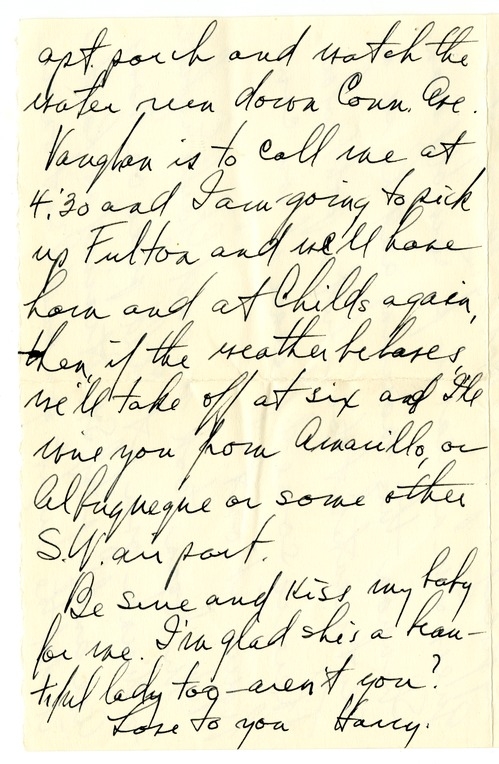 apt. porch and watch the
water run down Conn. Ave.
Vaughan is to call me at
4:30 and I am going to pick
up Fulton and we'll have
ham and at Childs again,
then, if the weather behaves,
we'll take off at six and I'll
wire you from Amarillo, or
Albuquerque or some other
S.W. air port.
Be sure and kiss my baby
for me. I'm glad she's a beau-
tiful lady too - aren't you?
Love to you Harry.